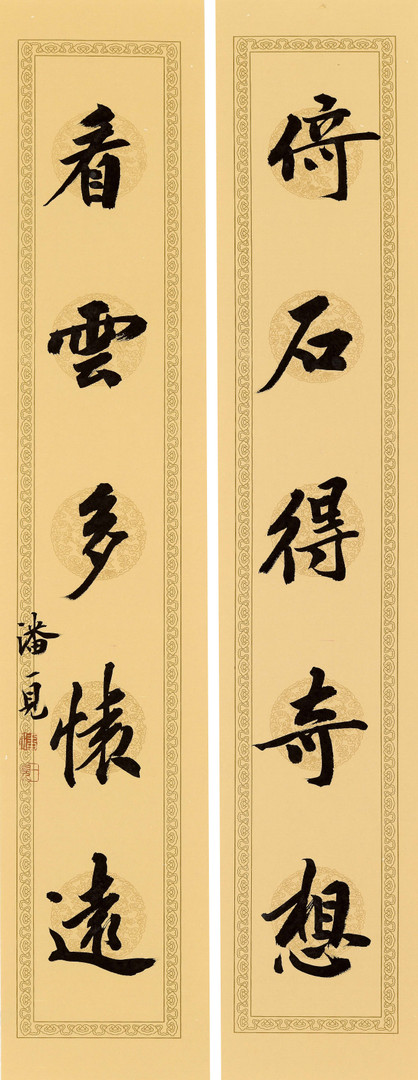 倚石得奇想
看雲多懷遠
潘一見